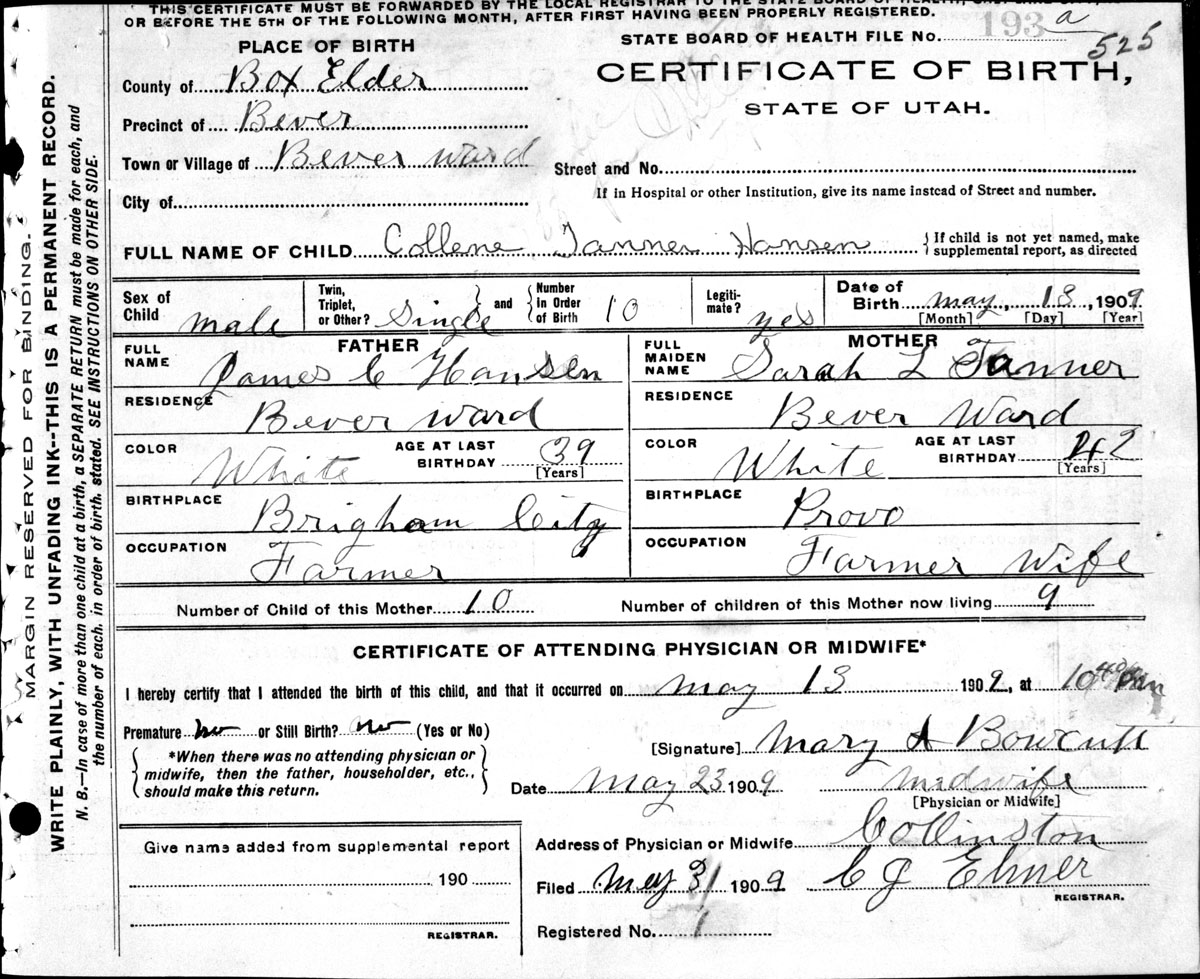 THIS CERTIFICATE MUST BE FORWARDED BY THE LOCAL REGISTRAR TO THE STATE BOARD OF HEALTH,
OR BEFORE THE 5TH OF THE FOLLOWING MONTH, AFTER FIRST HAVING BEEN PROPERLY REGISTERED.
PLACE OF BIRTH
STATE BOARD OF HEALTH FILE No. 193 a
525
County of Box Elder
CERTIFICATE OF BIRTH,
STATE OF UTAH.
Precinct of Bever
Town or Village of Bever Ward
Street and No.
City of
If in Hospital or other Institution, give its name instead of Street and number.
FULL NAME OF CHILD Collene Tanner Hansen
{If child is not yet named, make
supplemental report, as directed
Sex of Child male
Twin, Triplet, or Other? Single
and
Number in Order of Birth 10
Legiti-mate? yes
Date of Birth May, 13, 1909
[Month] [Day] [Year]
FATHER
MOTHER
FULL NAME James C Hansen
FULL MAIDEN NAME Sarah L Tanner
RESIDENCE Bever Ward
RESIDENCE Bever Ward
COLOR White
AGE AT LAST BIRTHDAY 39 [Years]
COLOR White
AGE AT LAST BIRTHDAY 42 [Years]
BIRTHPLACE Brigham City
BIRTHPLACE Provo
OCCUPATION Farmer
OCCUPATION Farmer Wife
Number of Child of this Mother 10
Number of children of this Mother now living 9
CERTIFICATE OF ATTENDING PHYSICIAN OR MIDWIFE*
I hereby certify that I attended the birth of this child, and that it occurred on May 13 1909, at 10 40
Premature no or Still Birth? no (Yes or No)
*When there was no attending physician or
midwife, then the father, householder, etc.,
should make this return.
[Signature] Mary A Bowcutt
Date May 23 1909
Midwife
[Physician or Midwife]
Give name added from supplemental report
190
REGISTRAR.
Address of Physician or Midwife Collinston
Filed May 31 1909
C J
REGISTRAR.
Registered No. 1
MARGIN RESERVED FOR BINDING.
WRITE PLAINLY, WITH UNFADING INK--THIS IS A PERMANENT RECORD.
N. B.—In case of more than one child at a birth, a SEPARATE RETURN must be made for each, and
the number of each. in order of birth. stated. SEE INSTRUCTIONS ON OTHER SIDE.